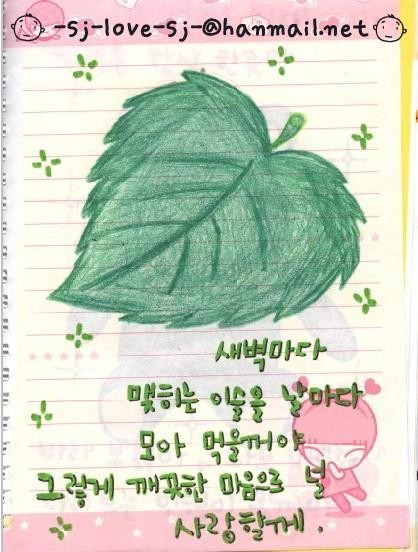 -sj-love-sj-@hanmail.net
새벽마다
맺히는 이슬을 날마다
모아 먹을께야
그렇게 깨끗한 마음으로 널
사랑할께.